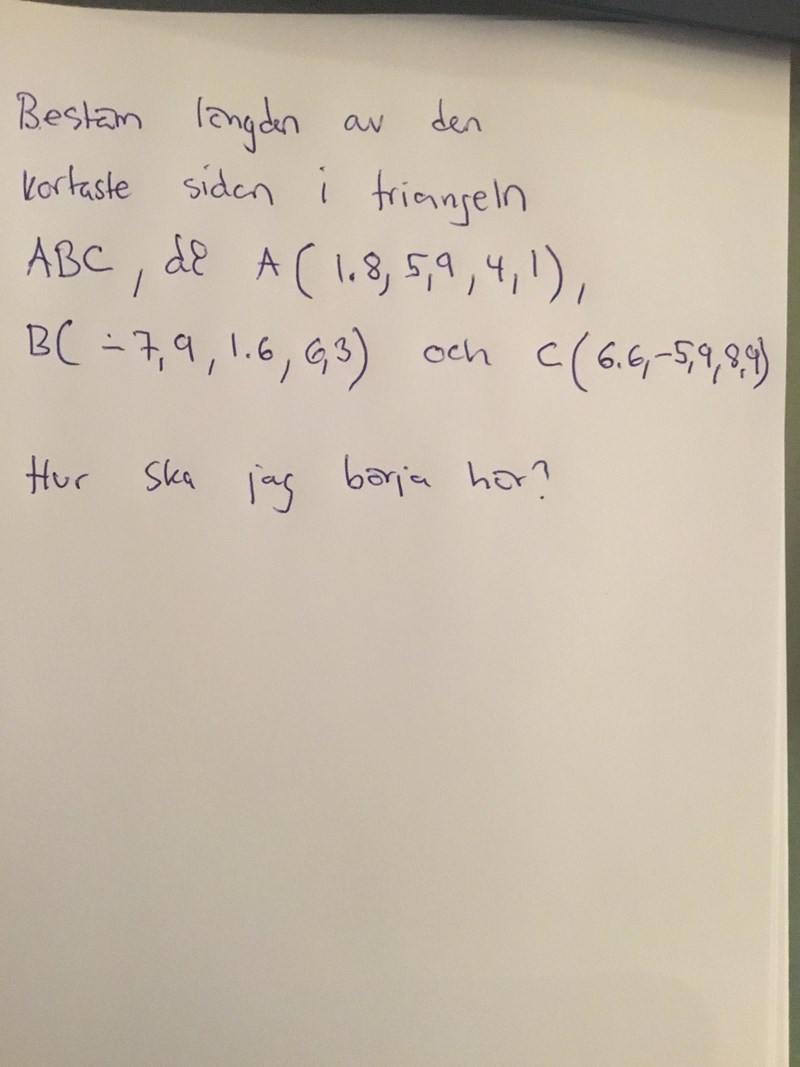 Bestäm längden av den
kortaste sidan i triangeln
ABC, då A(1.8, 5,9, 4,1),
B(-7,9, 1.6, 6,3) och C(6.6,-5,9,8,9)
Hur ska jag börja här?